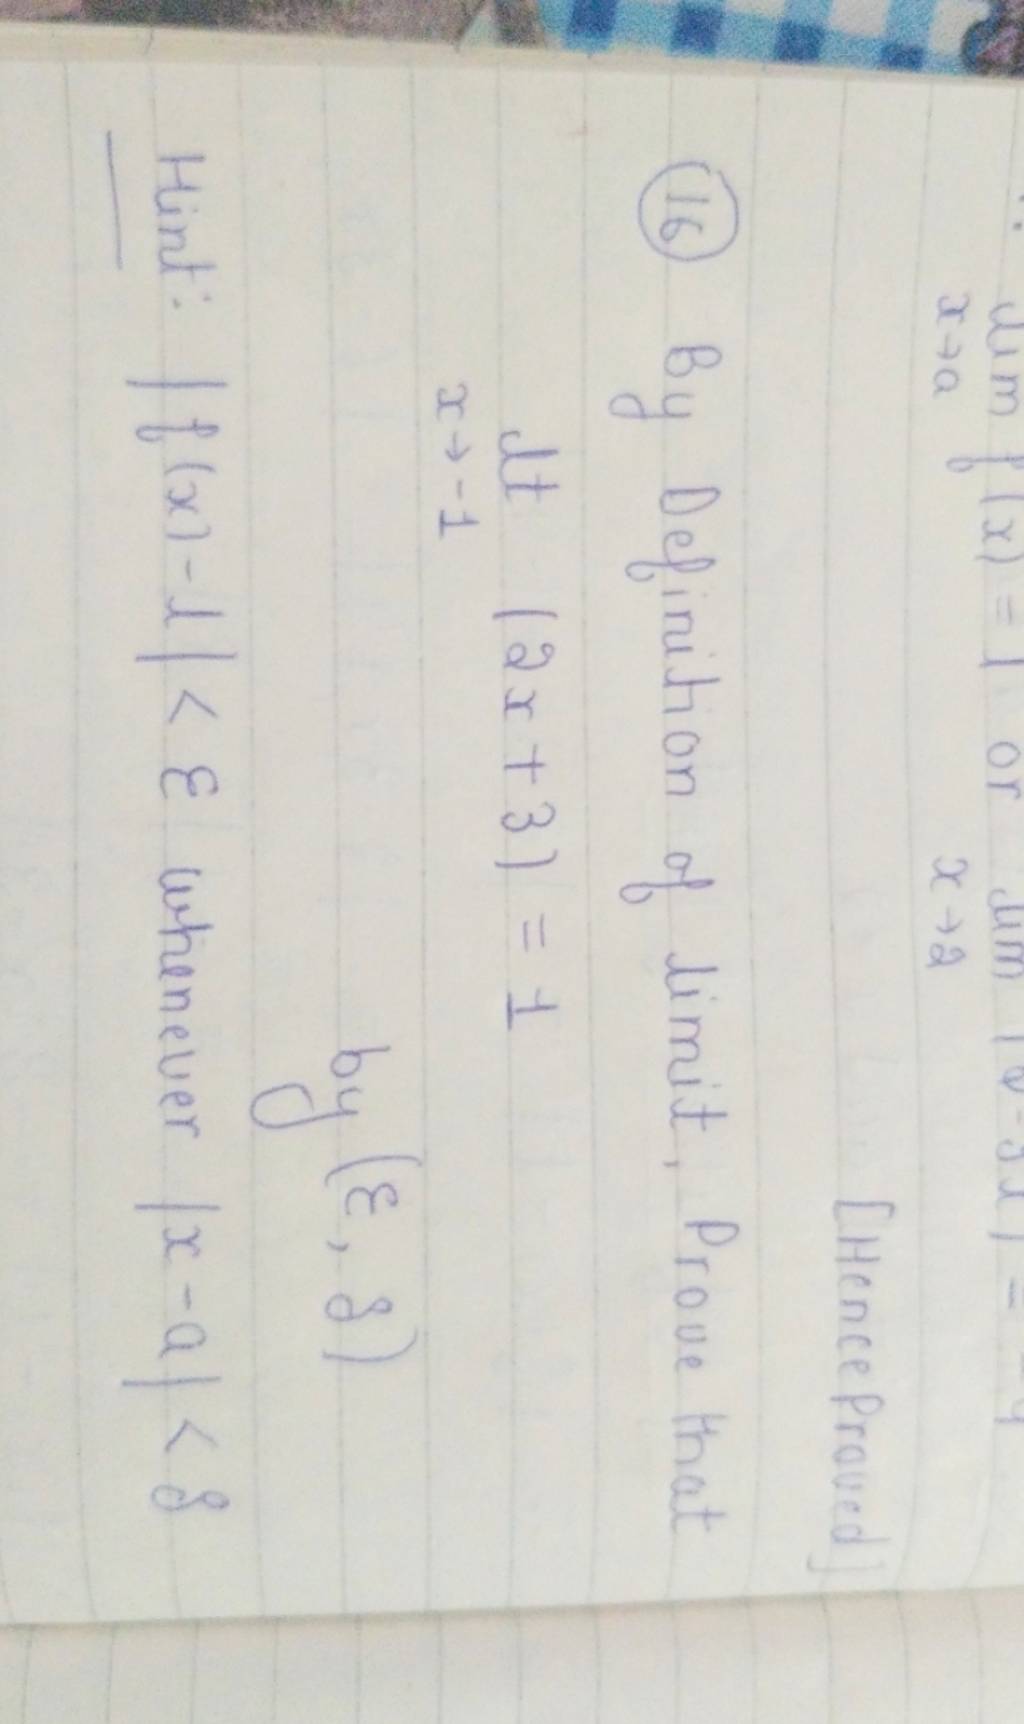 ∴ lim f(x) = l or lim
x→a x→2
[Hence Proved]
(16) By Definition of limit, Prove that
lt (2x+3) = 1
x→-1
by (ε, δ)
Hint: |f(x)-l| < ε whenever |x-a| < δ